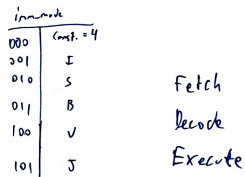 imm_mode
000 Const. = 4
001 I
010 S
011 B
100 U
101 J
Fetch
Decode
Execute